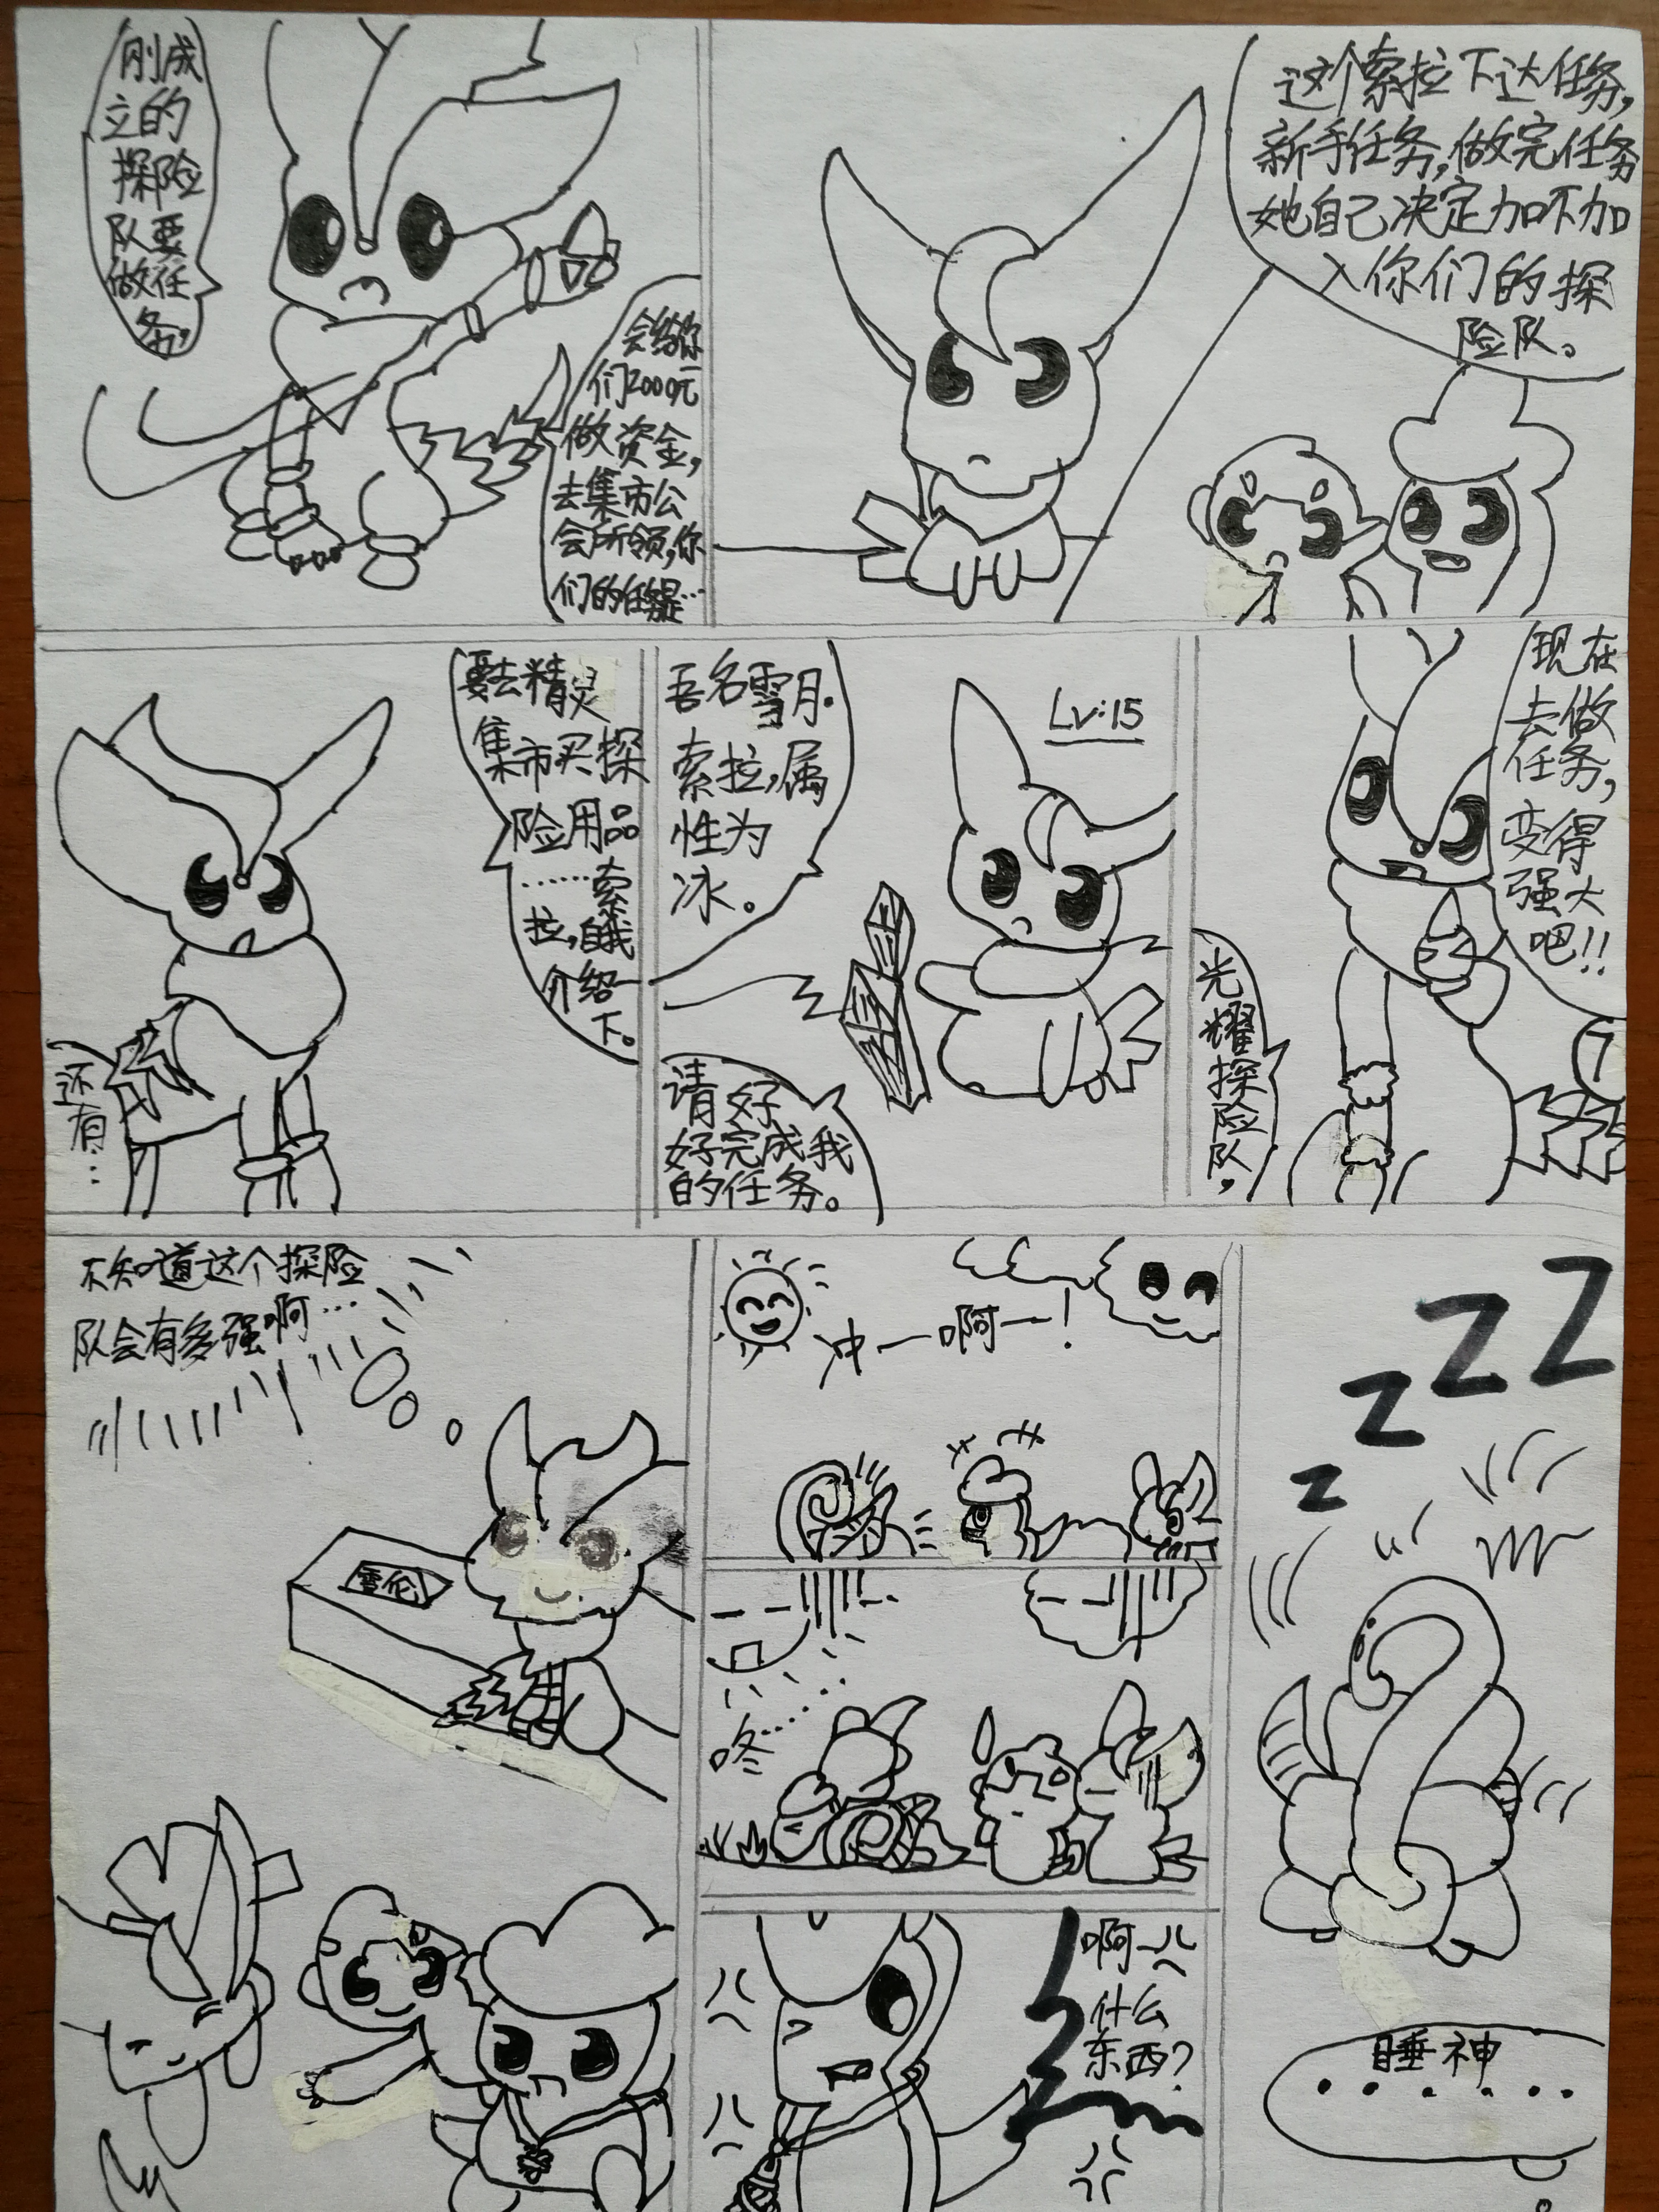 刚成
立的
探险
队要
做任
务。
会给你
们2000元
做资金,
去集市公
会所领,你
们的任务是…
这个索拉下达任务,
新手任务,做完任务
她自己决定加不加
入你们的探
险队。
还
有…
要去精灵
集市买探
险用品
……索
拉,自我
介绍一
下。
吾名雪月.
索拉,属
性为
冰。
Lv:15
请好
好完成我
的任务。
现在
去做
任务,
变得
强大
吧!!
光
耀
探
险
队,
不知道这个探险
队会有多强啊…
雪伦
冲一啊一!
咚……
啊一
什么
东西?
z z Z Z
睡神
......